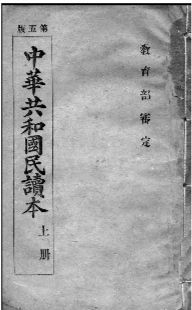 教育部審定
版五第
中華共和國民讀本
上冊